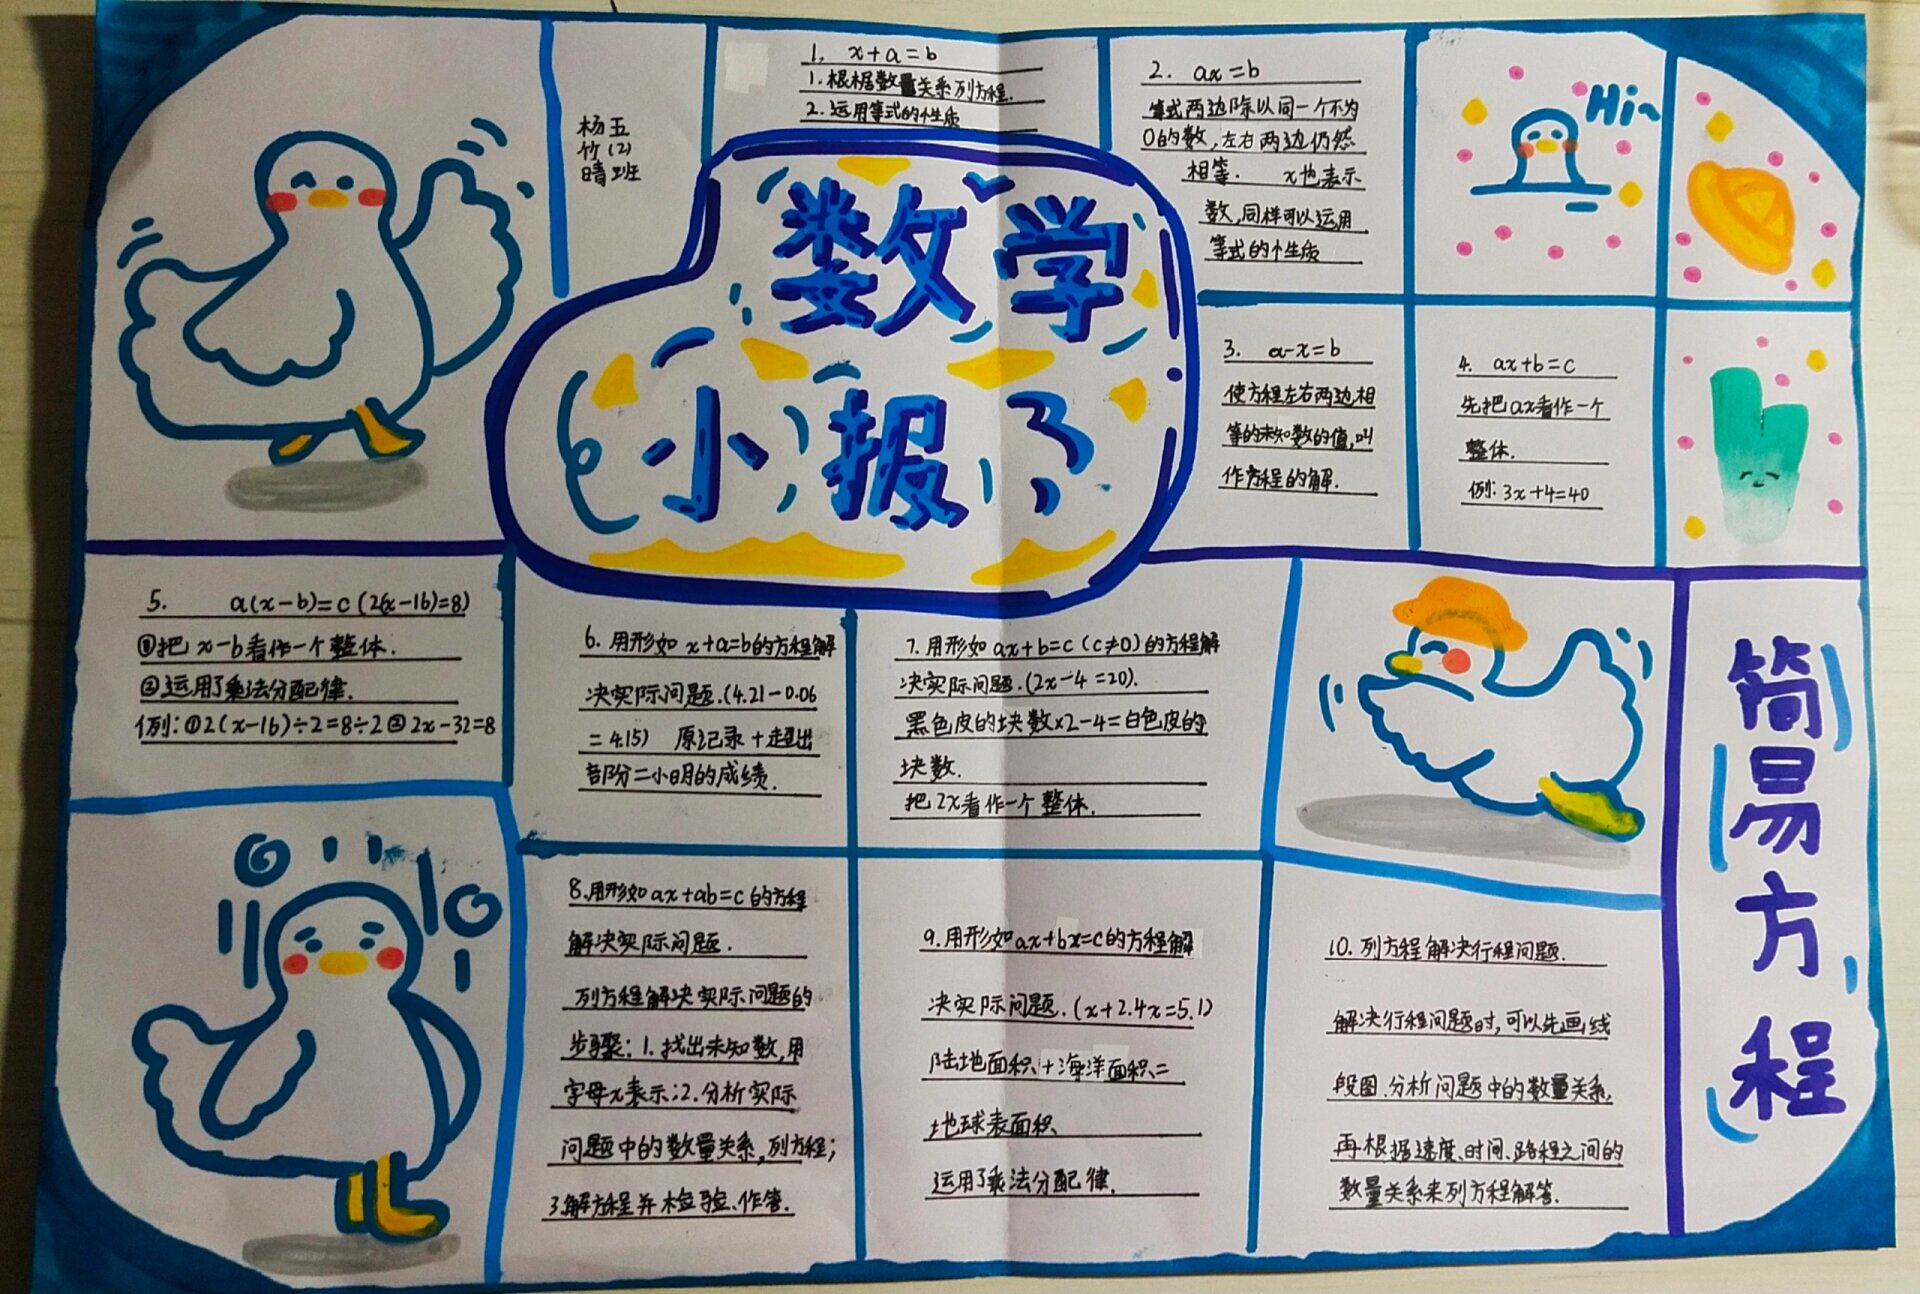 杨玉
竹(2)
晴班
1. x+a=b
1.根据数量关系列方程.
2.运用等式的性质
2. ax=b
等式两边除以同一个不为
0的数,左右两边仍然
相等. x也表示
数,同样可以运用
等式的性质
Hi~
数学
小报
3. a-x=b
使方程左右两边相
等的未知数的值,叫
作方程的解.
4. ax+b=c
先把ax看作一个
整体.
例:3x+4=40
简易方程
5. a(x-b)=c(2(x-16)=8)
①把x-b看作一个整体.
②运用了乘法分配律.
例:①2(x-16)÷2=8÷2②2x-32=8
6.用形如x+a=b的方程解
决实际问题.(4.21-0.06
=4.15) 原记录+超出
部分=小明的成绩.
7.用形如ax+b=c(c≠0)的方程解
决实际问题.(2x-4=20).
黑色皮的块数×2-4=白色皮的
块数.
把2x看作一个整体.
8.用形如ax+ab=c的方程
解决实际问题.
列方程解决实际问题的
步骤:1.找出未知数,用
字母x表示;2.分析实际
问题中的数量关系,列方程;
3.解方程并检验、作答.
9.用形如ax+bx=c的方程解
决实际问题.(x+2.4x=5.1)
陆地面积+海洋面积=
地球表面积
运用了乘法分配律.
10.列方程解决行程问题.
解决行程问题时,可以先画线
段图.分析问题中的数量关系,
再根据速度、时间、路程之间的
数量关系来列方程解答.